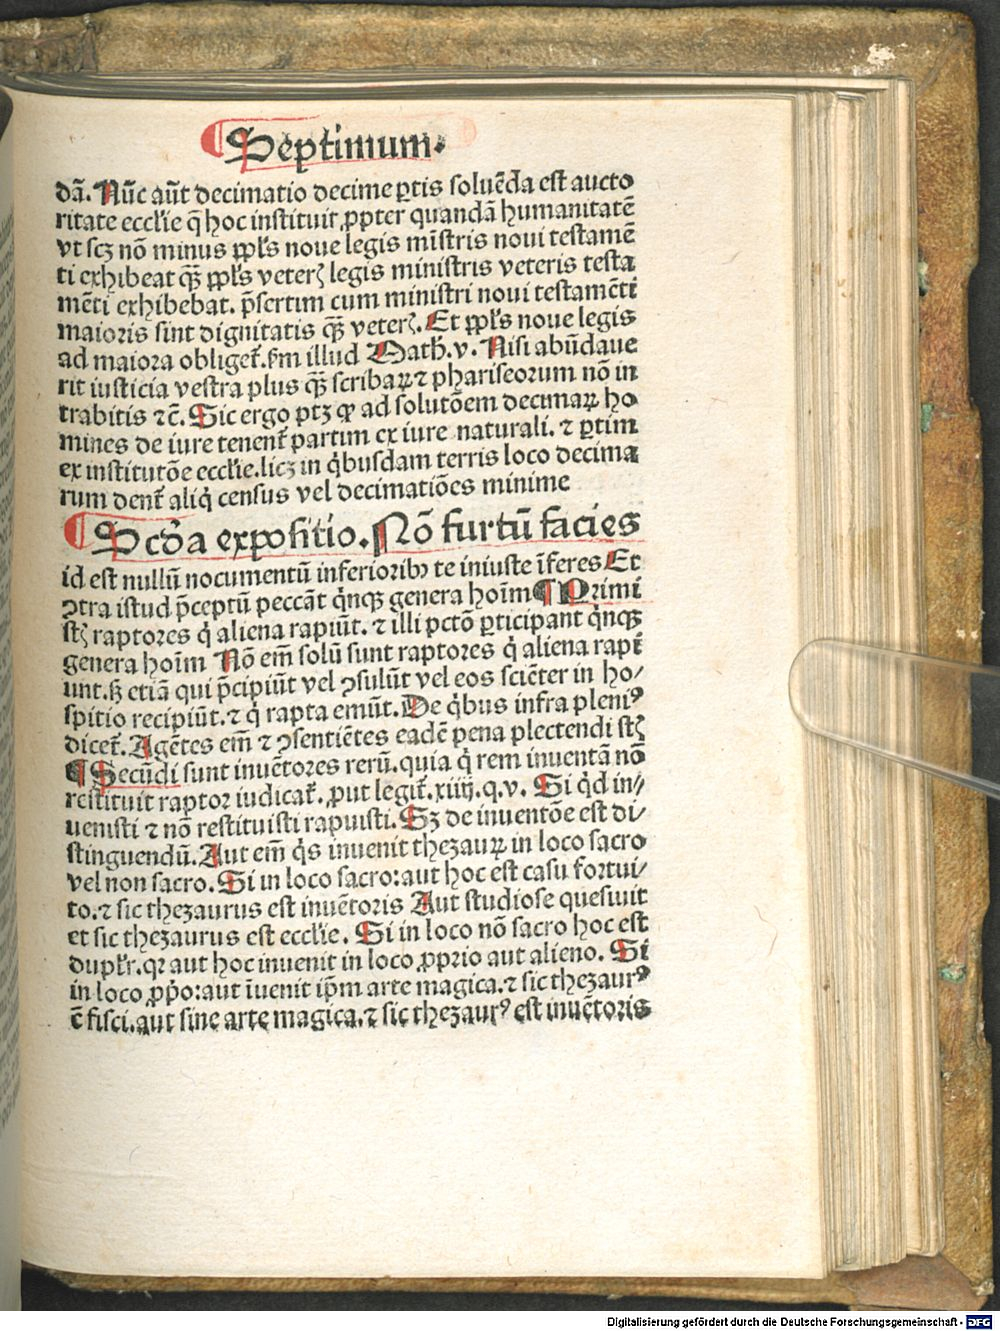 Septimum.
dā. Nūc aūt decimatio decime ꝑtis soluēda est aucto
ritate eccl'ie q̄ hoc instituit ꝓpter quandā humanitatē
vt scꝫ nō minus ꝓpl's noue legis mīstris noui testamē
ti exhibeat qͣꝫ ꝓpl's veterꝭ legis ministris veteris testa
mēti exhibebat. p̄sertim cum ministri noui testamēti
maioris sint dignitatis qͣꝫ veterꝭ. Et ꝓpl's noue legis
ad maiora obliget᷑. ẜm illud Math̄. v. Nisi abūdaue
rit iusticia vestra plus qͣꝫ scribaꝝ ⁊ phariseorum nō in
trabitis ⁊c̄. Sic ergo ptꝫ ꝙ ad solutōem decimaꝝ ho
mines de iure tenent᷑ partim ex iure naturali. ⁊ ꝑtim
ex institutōe eccl'ie. licꝫ in q̇busdam terris loco decima
rum dent᷑ aliq̇ census vel decimatiōes minime
Scd̄a expositio. Nō furtū facies
id est nullū nocumentū inferioribꝫ te iniuste īferes Et
ↄtra istud p̄ceptū peccāt q̇nqꝫ genera hoīm ¶ Primi
st̄ raptores q̇ aliena rapiūt. ⁊ illi pctō ꝑticipant q̇nqꝫ
genera hoīm Nō em̄ solū sunt raptores q̇ aliena rapī
unt. sꝫ etiā qui p̄cipiūt vel ↄsulūt vel eos sciēter in ho/
spitio recipiūt. ⁊ q̇ rapta emūt. De q̇bus infra pleniꝰ
dicet᷑. Agētes em̄ ⁊ ↄsentiētes eadē pena plectendi st̄
¶ Secūdi sunt inuētores rerū. quia q̇ rem inuentā nō
restituit raptor iudicat᷑. ꝓut legit᷑. xiiij. q. v. Si q̇d in/
uenisti ⁊ nō restituisti rapuisti. Sꝫ de inuentōe est di/
stinguendū. Aut em̄ q̇s inuenit thezauꝝ in loco sacro
vel non sacro. Si in loco sacro: aut hoc est casu fortui/
to. ⁊ sic thezaurus est inuētoris Aut studiose quesiuit
et sic thezaurus est eccl'ie. Si in loco nō sacro hoc est
dupl'r. qꝛ aut hoc inuenit in loco ꝓprio aut alieno. Si
in loco ꝓp̄o: aut īuenit ip̄m arte magica. ⁊ sic thezaurꝰ
ē fisci. aut sine arte magica. ⁊ sic thezaurꝰ est inuētoris
Digitalisierung gefördert durch die Deutsche Forschungsgemeinschaft - DFG